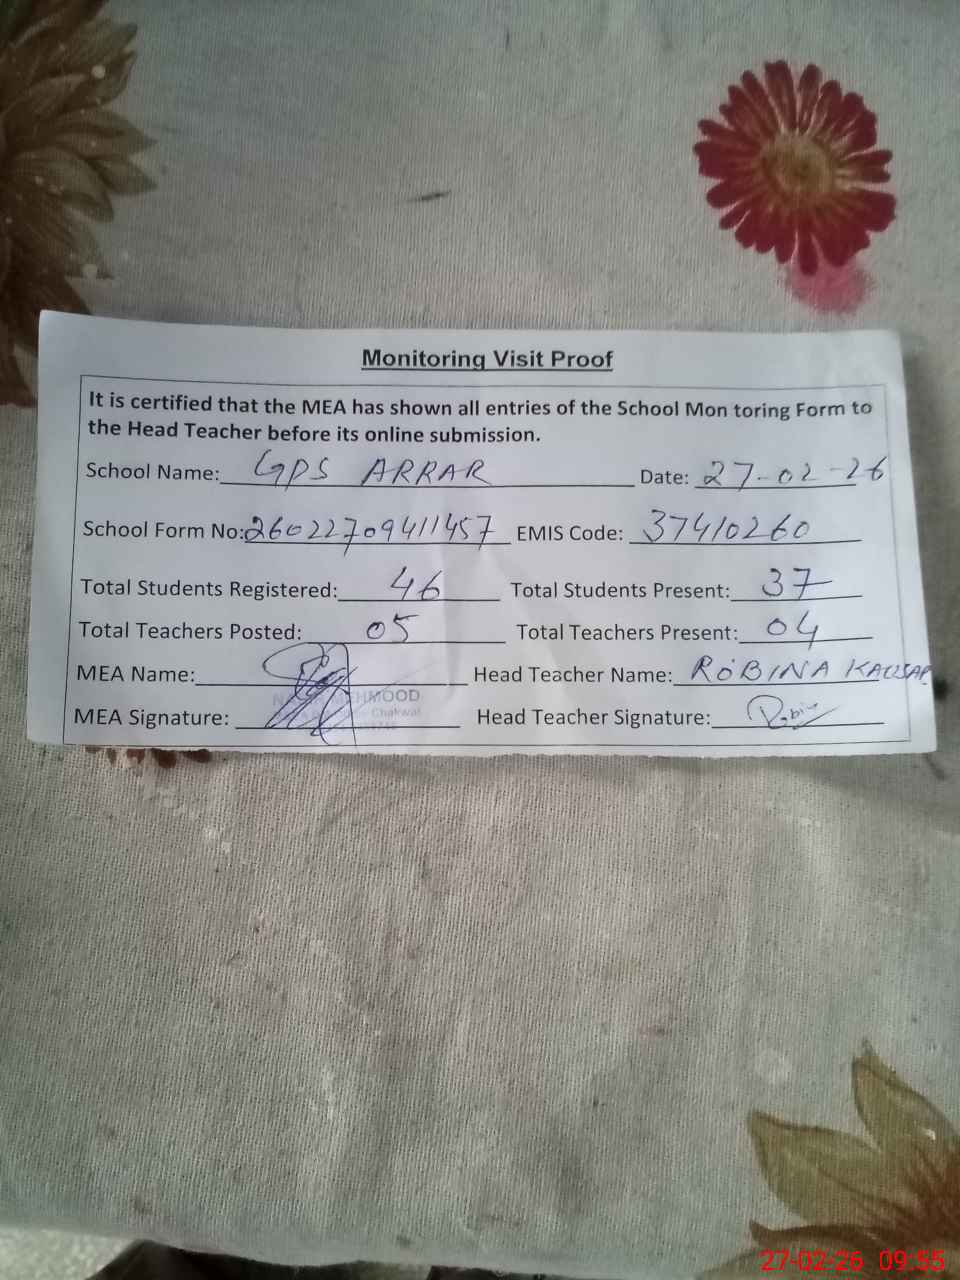 Monitoring Visit Proof
It is certified that the MEA has shown all entries of the School Mon toring Form to
the Head Teacher before its online submission.
School Name: GPS ARRAR Date: 27-02-26
School Form No: 26022709411457 EMIS Code: 37410260
Total Students Registered: 46 Total Students Present: 37
Total Teachers Posted: 05 Total Teachers Present: 04
MEA Name: Head Teacher Name: ROBINA KAUSAR
MEHMOOD
Chakwal
MEA Signature: Head Teacher Signature: Robina
27-02-26 09:55